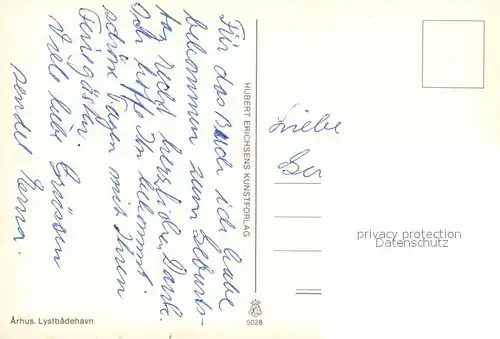 Für das Buch ich habe
bekommen zum Geburts-
tag recht herzlichen Dank.
Ich hoffe Ihr bekommt
schöne Tagen mit Ihren
Feriegästen.
Viele liebe Grüssen
sendet Erna.
HUBERT ERICHSENS KUNSTFORLAG
Liebe
Ger
privacy protection
Datenschutz
Århus. Lystbådehavn
5028